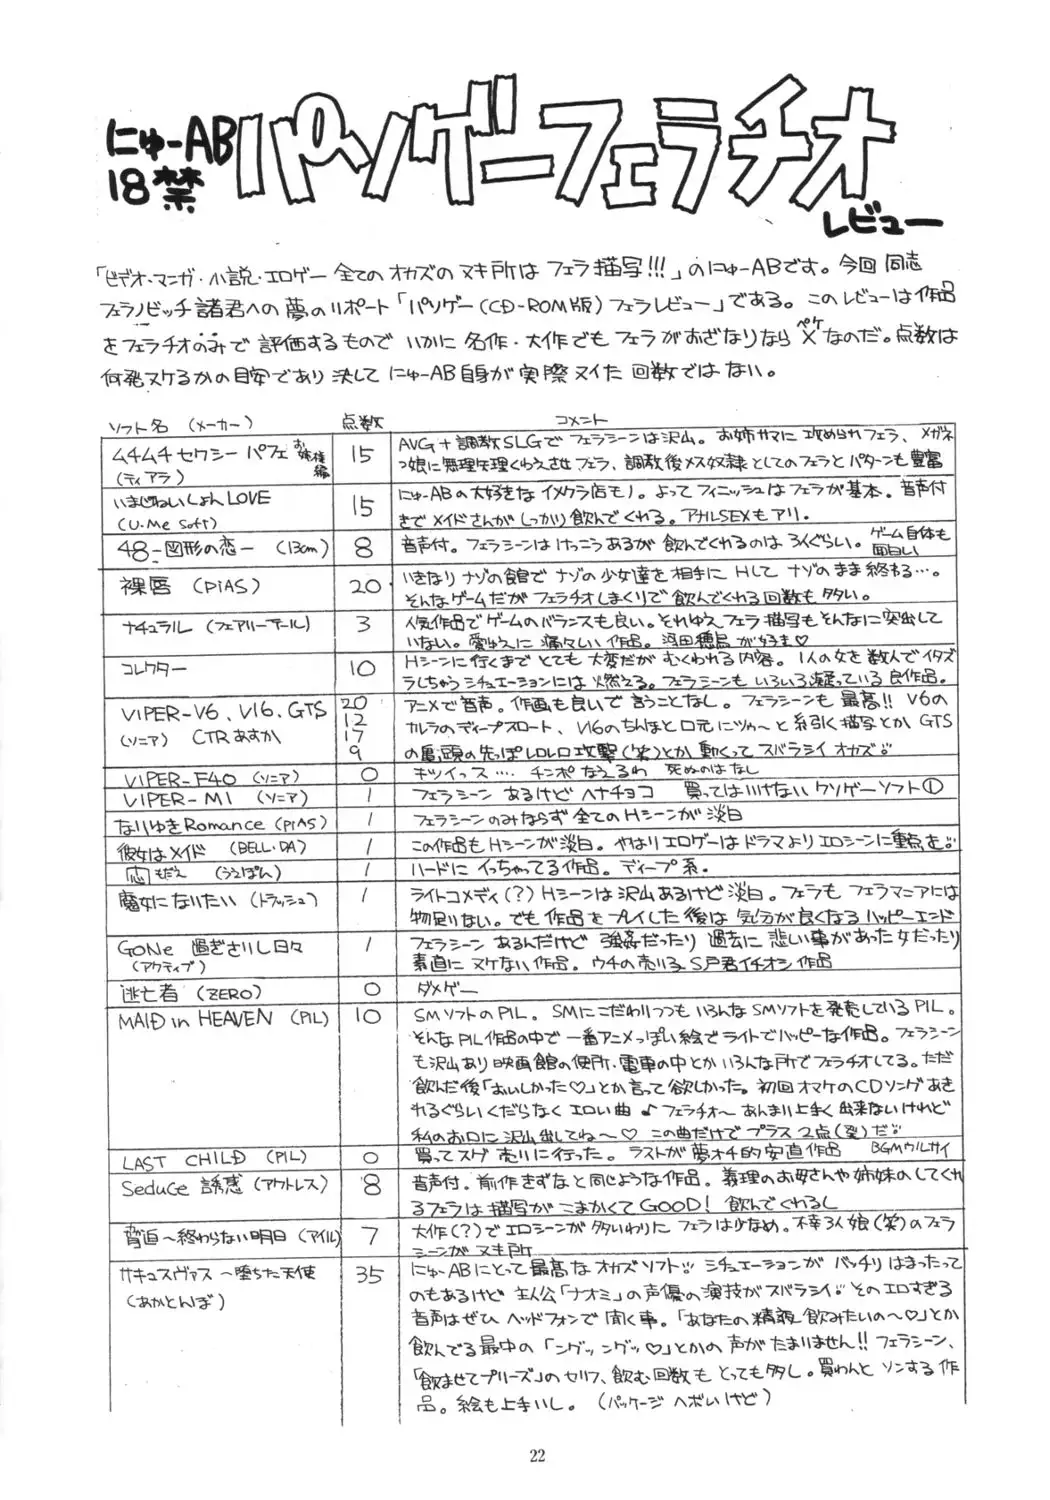 にゅーAB
18禁
パソゲーフェラチオ
レビュー
「ビデオ・マンガ・小説・エロゲー 全てのオカズのヌキ所は フェラ描写!!!」のにゅーABです。今回 同志
フェラノビッチ諸君への夢のリポート「パソゲー(CD-ROM版)フェラレビュー」である。このレビューは作品
をフェラチオのみで評価するもので いかに 名作・大作でもフェラがおざなりなら×なのだ。点数は
ペケ
何発ヌケるかの目安であり 決して にゅーAB自身が実際ヌイた回数ではない。
ソフト名 (メーカー) 点数 コメント
ムチムチセクシーパフェ お姉様編 (ティアラ) 15
AVG+調教SLGで フェラシーンは沢山。お姉サマに攻められフェラ、メガネ
っ娘に無理矢理くわえさせフェラ、調教後メス奴隷としてのフェラとパターンも豊富
いまじねいしょんLOVE (U・Me Soft) 15
にゅーABの大好きなイメクラ店モノ。よってフィニッシュはフェラが基本。音声付
きでメイドさんがしっかり飲んでくれる。アナルSEXもアリ.
48-図形の恋- (13cm) 8
音声付。フェラシーンはけっこうあるが 飲んでくれるのは3人ぐらい。ゲーム自体も面白い
裸唇 (PIAS) 20
いきなりナゾの館で ナゾの少女達を相手に Hして ナゾのまま終わる…。
そんなゲームだがフェラチオしまくりで飲んでくれる回数も多い。
ナチュラル (フェアリーテール) 3
人気作品でゲームのバランスも良い。それゆえフェラ描写もそんなに突出して
いない。愛ゆえに痛々しい作品。 が好き♡
コレクター 10
Hシーンに行くまでとても大変だが むくわれる内容。1人の女を数人でイタズ
ラしちゃうシチュエーションには燃える。フェラシーンもいろいろ凝っている良作品。
VIPER-V6、V16、GTS
(ソニア) CTRあすか
20
12
17
9
アニメで音声。作画も良いで言うことなし。フェラシーンも最高!! V6の
カルラのディープスロート、V16のちんぽと口元にツゥ〜と糸引く描写とかGTS
の亀頭の先っぽレロレロ攻撃(笑)とか動くってスバラシイオカズ!!
VIPER-F40 (ソニア) 0 キツイっス…. チンポなえるわ 死ぬのはなし
VIPER-M1 (ソニア) 1 フェラシーン あるけど ヘナチョコ 買ってはいけないクソゲーソフト①
なりゆきRomance (PIAS) 1 フェラシーンのみならず全てのHシーンが淡白
彼女はメイド (BELL・DA) 1 この作品もHシーンが淡白。やはりエロゲーはドラマよりエロシーンに重点を!!
恋もだえ (うえぽん) 1 ハードに イっちゃってる作品。ディープ系.
魔女になりたい (トラッシュ) 1
ライトコメディ(?) Hシーンは沢山あるけど淡白。フェラも フェラマニアには
物足りない。でも作品をプレイした後は 気分が良くなるハッピーエンド
GONE 過ぎさりし日々 (アクティブ) 1
フェラシーン あるんだけど 強姦だったり 過去に 悲しい事があった女だったり
素直に ヌケない作品。ウチの売り子S戸君イチオシ作品
逃亡者 (ZERO) 0 ダメゲー
MAID in HEAVEN (PIL) 10
SMソフトのPIL。SMにこだわりつつもいろんなSMソフトを発売しているPIL。
そんなPIL作品の中で一番アニメっぽい絵でライトでハッピーな作品。フェラシーン
も沢山あり映画館の便所・電車の中とかいろんな所でフェラチオしてる。ただ
飲んだ後「おいしかった♡」とか言って欲しかった。初回オマケのCDソングあき
れるぐらいくだらなくエロい曲♪フェラチオ〜 あんまり上手く出来ないけれど
私のお口に沢山出してね〜♡ この曲だけでプラス2点(爆)だ!!
LAST CHILD (PIL) 0 買ってスグ売りに行った。ラストが夢オチ的安直作品 BGMウルサイ
Seduce 誘惑 (アウトレス) 8
音声付。前作きずなと同じような作品。義理のお母さんや姉妹のしてくれ
るフェラは描写がこまかくてGOOD! 飲んでくれるし
脅迫〜終わらない明日 (アイル) 7
大作(?)でエロシーンが多いわりに フェラは少なめ。不幸3人娘(笑)のフェラ
シーンがヌキ所
サキュスヴァス〜堕ちた天使 (あかとんぼ) 35
にゅーABにとって最高なオカズソフト!! シチュエーションがバッチリはまったって
のもあるけど 主人公「ナオミ」の声優の演技がスバラシイ!! そのエロすぎる
音声はぜひ ヘッドフォンで 聞く事。「あなたの精液 飲みたいの〜♡」とか
飲んでる最中の「ングッングッ♡」とかの声がたまりません!! フェラシーン、
「飲ませてプリーズ」のセリフ、飲む回数もとっても多し。買わんとソンする作
品。絵も上手いし。(パッケージ ヘボいけど)
22